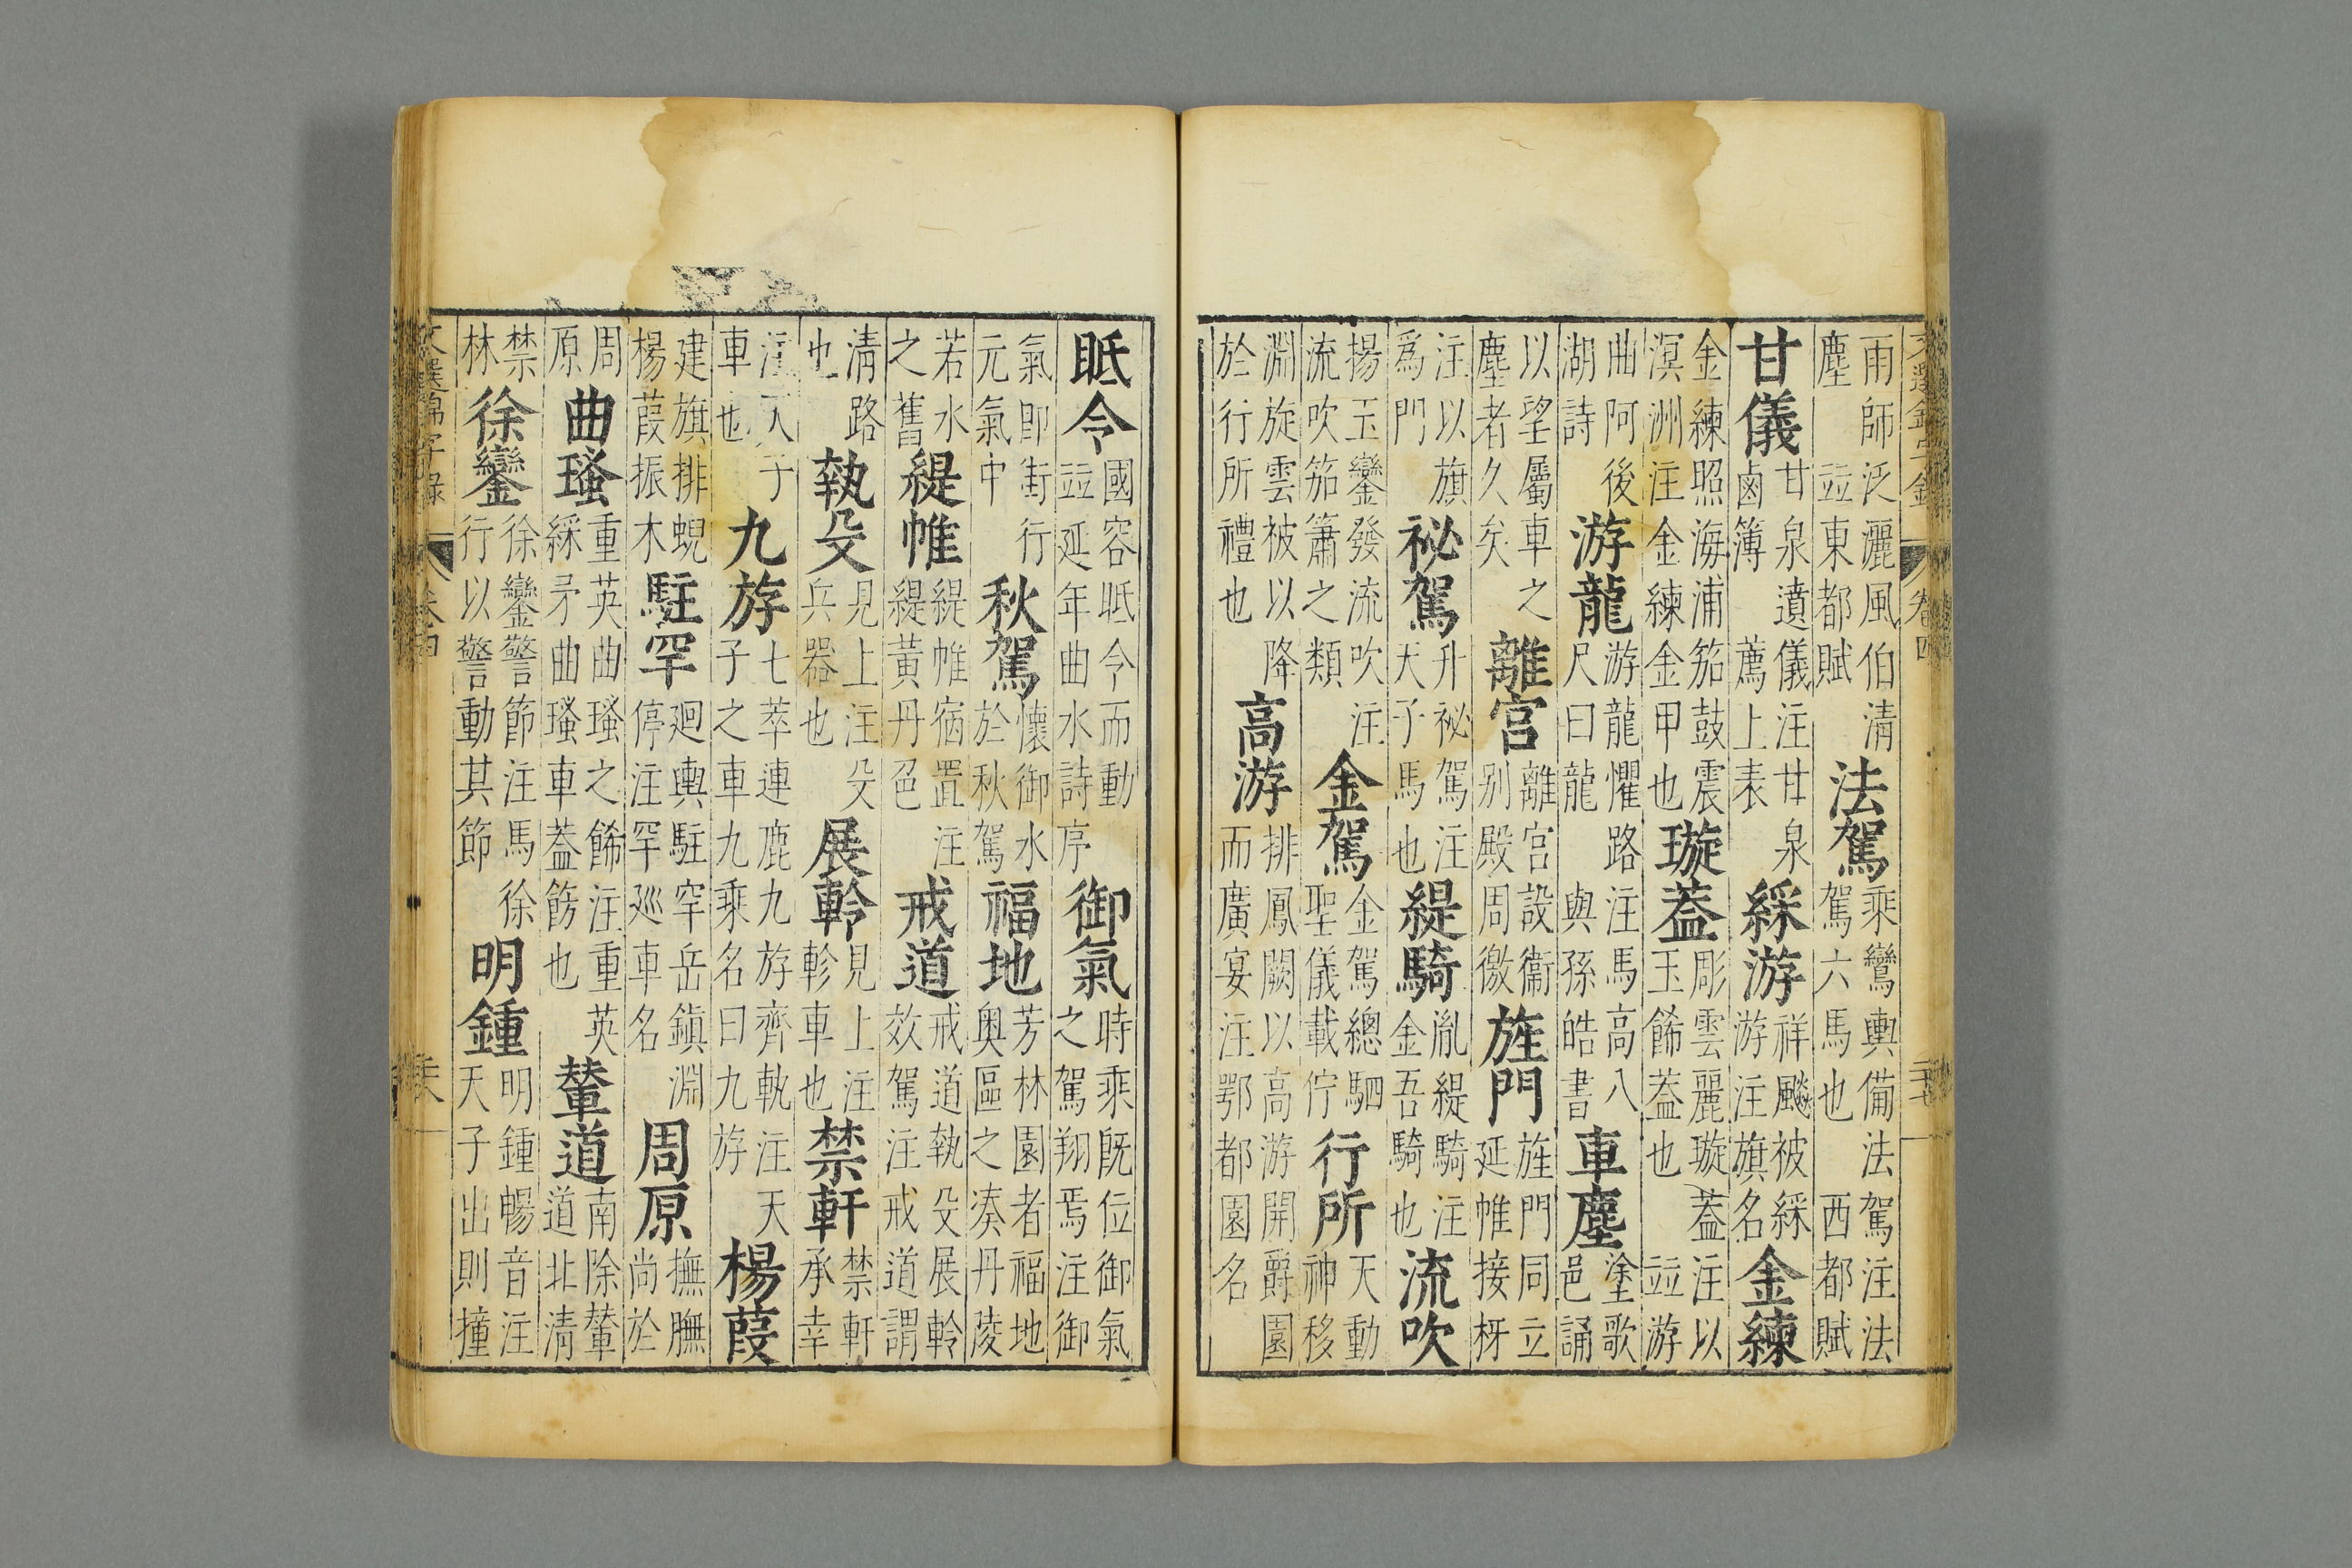 文選錦字錄 卷四
雨師泛灑風伯清塵 並東都賦 法駕 乘鸞輿備法駕注法駕六馬也 西都賦
甘儀 甘泉遺儀注甘泉鹵簿 薦上表 綵游 祥飈被綵游注旗名 金練
金練照海浦笳鼓震溟洲注金練金甲也 璇蓋 彫雲麗璇蓋注以玉餙蓋也 並游
曲阿後湖詩 游龍 游龍懼路注馬高八尺曰龍 與孫皓書 車塵 塗歌邑誦
以望屬車之塵者久矣 離宮 離宮設衞别殿周徼 旌門 旌門同立延帷接枑
注以旗爲門 祕駕 升祕駕注天子馬也 緹騎 胤緹騎注金吾騎也 流吹
揚玉鑾發流吹注流吹笳簫之類 金駕 金駕總駟聖儀載佇 行所 天動神移
淵旋雲被以降於行所禮也 高游 排鳳闕以高游開爵園而廣宴注鄂都園名
眂令 國容眂令而動並延年曲水詩序 御氣 時乘既位御氣之駕翔焉注御
氣即街行元氣中 秋駕 懷御水於秋駕 福地 芳林園者福地奥區之凑丹陵
若水之舊 緹帷 緹帷宿置注緹黃丹色 戒道 戒道執殳展軨效駕注戒道謂
清路也 執殳 見上注殳兵器也 展軨 見上注軫車也 禁軒 禁軒承幸
注天子車也 九斿 七萃連鹿九斿齊軌注天子之車九乘名曰九斿 楊葭
建旗排蜺楊葭振木 駐罕 廻輿駐罕岳鎭淵停注罕廵車名 周原 撫膴尚於
周原 曲瑵 重英曲瑵之餙注重英綵矛曲瑵車蓋餝也 輦道 南除輦道北清
禁林 徐鑾 徐鑾警節注馬徐行以警動其節 明鍾 明鍾暢音注天子出則撞
文選錦字錄 卷四